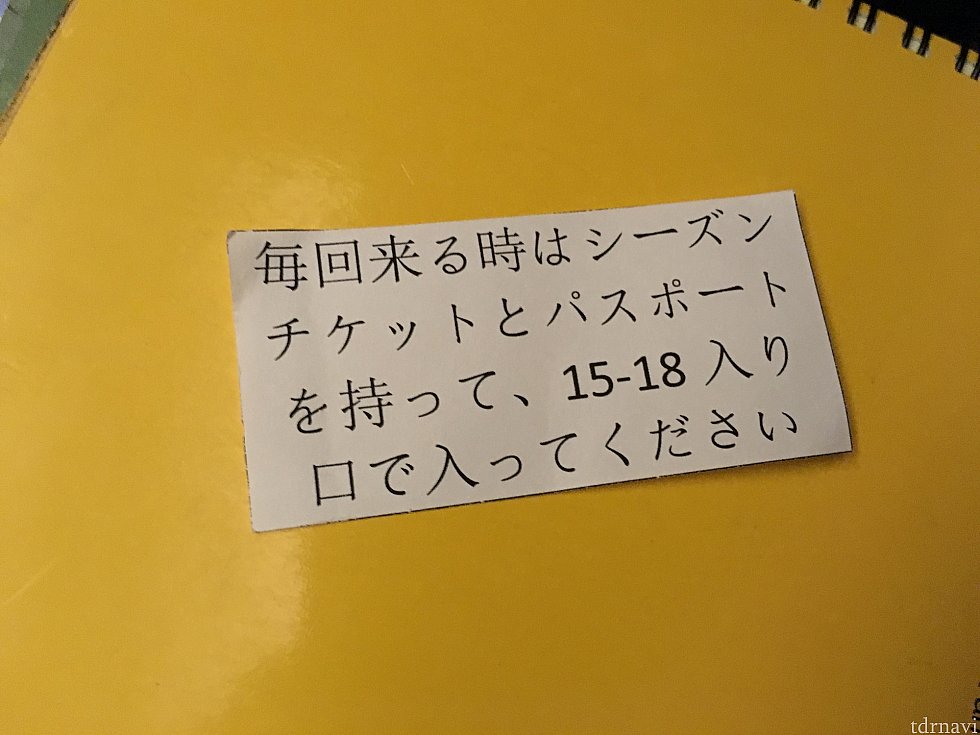 毎回来る時はシーズン
チケットとパスポート
を持って、15-18 入り
口で入ってください
tdrnavi